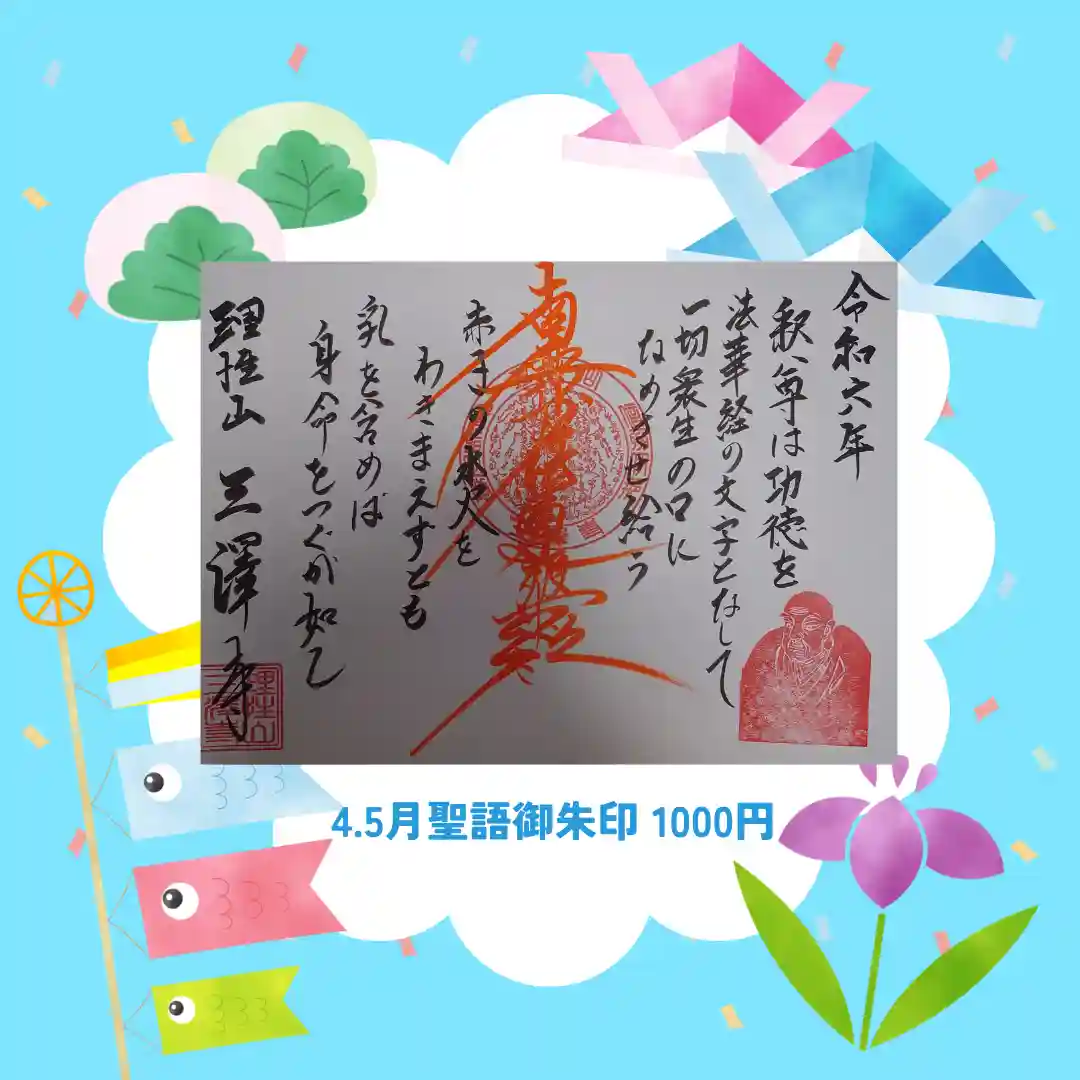 令和六年
釈尊は功徳を
法華経の文字となして
一切衆生の口に
なめさせ給う
南無妙法蓮華経
赤子の水火を
わきまえずとも
乳を含めば
身命をつぐが如し
理性山 三澤寺
4.5月聖語御朱印 1000円